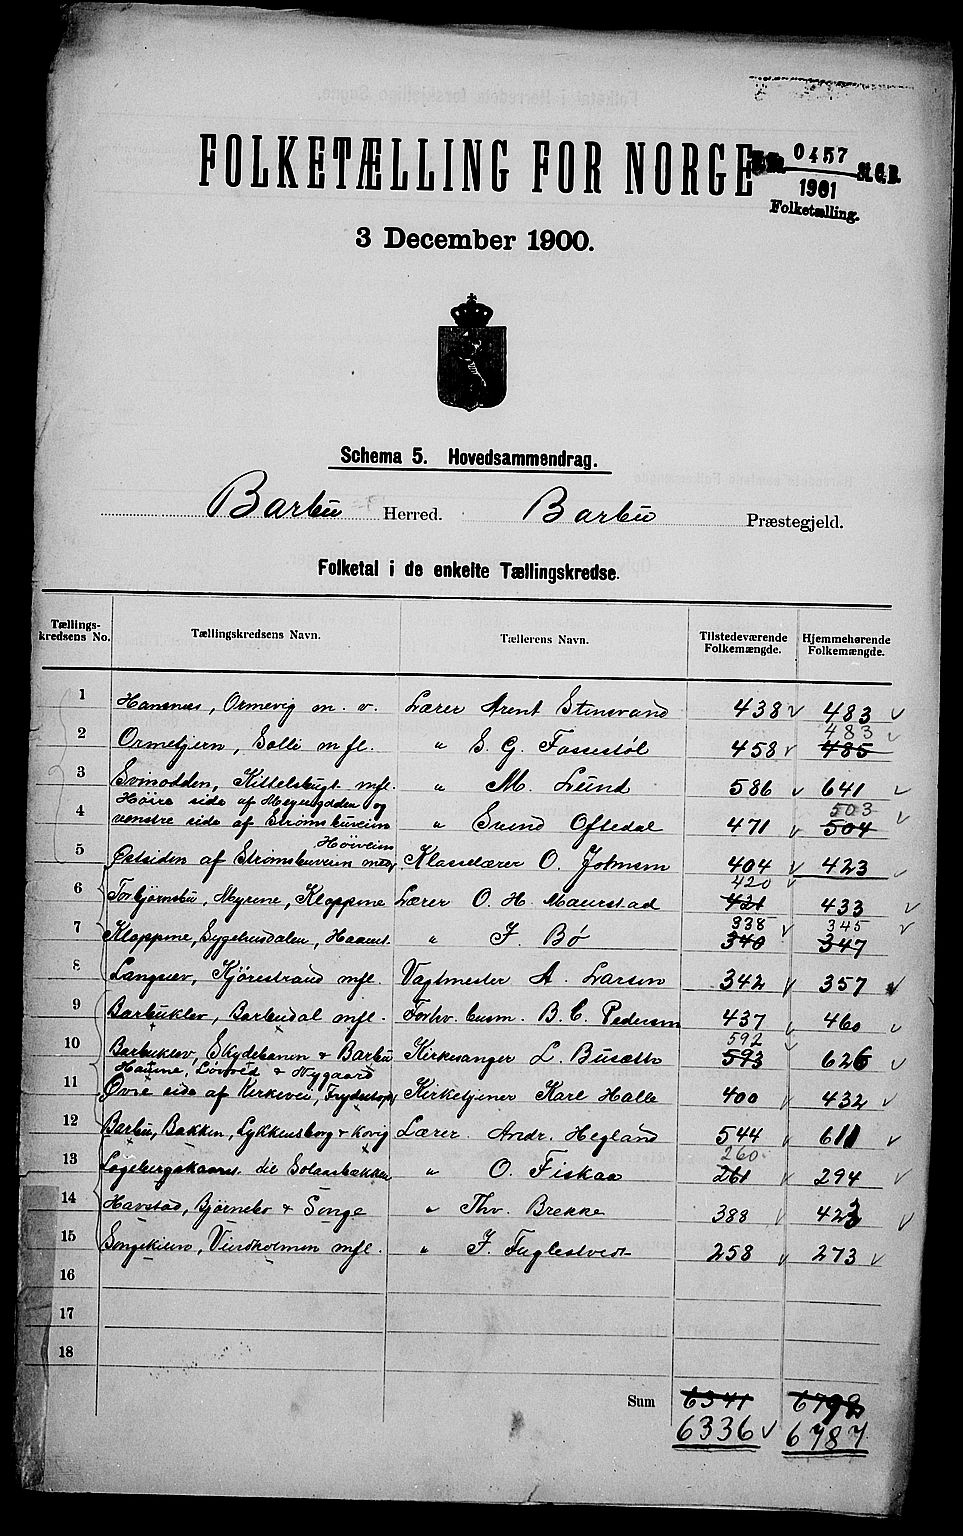 FOLKETÆLLING FOR NORGE
0457
1901
Folketælling.
3 December 1900.
Schema 5. Hovedsammendrag.
Barbu Herred. Barbu Præstegjeld.
Folketal i de enkelte Tællingskredse.
Tællings-kredsens No. Tællingskredsens Navn. Tællerens Navn. Tilstedeværende Folkemængde. Hjemmehørende Folkemængde.
1 Hansnes, Ormevig m. v. Lærer Arent Stensvand 438 483
483
2 Ormetjern, Solli m fl. " S. G. Fossestøl 458 485
3 Svinodden, Kittelsbugt mfl. " M. Lund 586 641
Høire side af Myrengdden og 503
4 venstre side af Strømsbuveien " Svend Oftedal 471 504
Høiveien
5 Østsiden af Strømsbuveien med Klasselærer O. Johnsen 404 423
420
6 Torbjørnsbu, Myrene, Kloppene Lærer O. H. Maurstad 421 433
338 345
7 Kloppene, Sygehusdalen, " J. Bø 340 347
8 Langsæv, Kjørestrand mfl. Vagtmester A. Larsen 342 357
9 Barbuklev, Barbudal mfl. Forhv. B. C. Pedersen 437 460
592
10 Barbuklev, Skydebanen & Barbu Kirkesanger L. Busæth 593 626
Havne, Løvved & Nygaard
11 Øvre side af Kirkevei, Kirketjener Karl Halle 400 432
12 Barbu, Bakken, Lykkensborg & Kovig Lærer Andr. Hegland 544 611
260
13 til Solaasbakken " O. Fiskaa 261 294
14 Havstad, Bjørnebo & Songe " Thv. Brekke 388 423
15 Songekilen, Vindholmen mfl. " J. Fuglestvedt 258 273
16
17
18
Sum 6341 6798
6336 6787